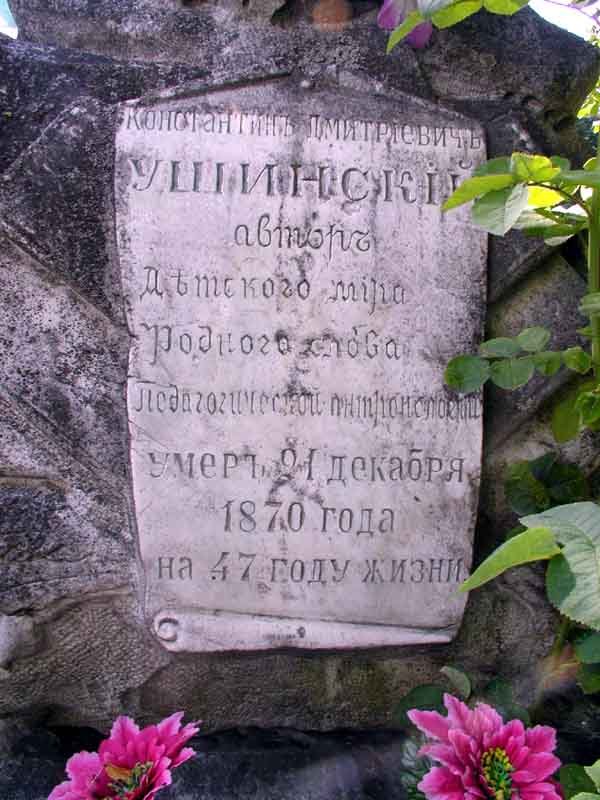 Константинъ Дмитріевичъ
УШИНСКІЙ
авторъ
Дѣтского міра
Родного слова
Педагогической антропологіи
умеръ 21 декабря
1870 года
на 47 году жизни